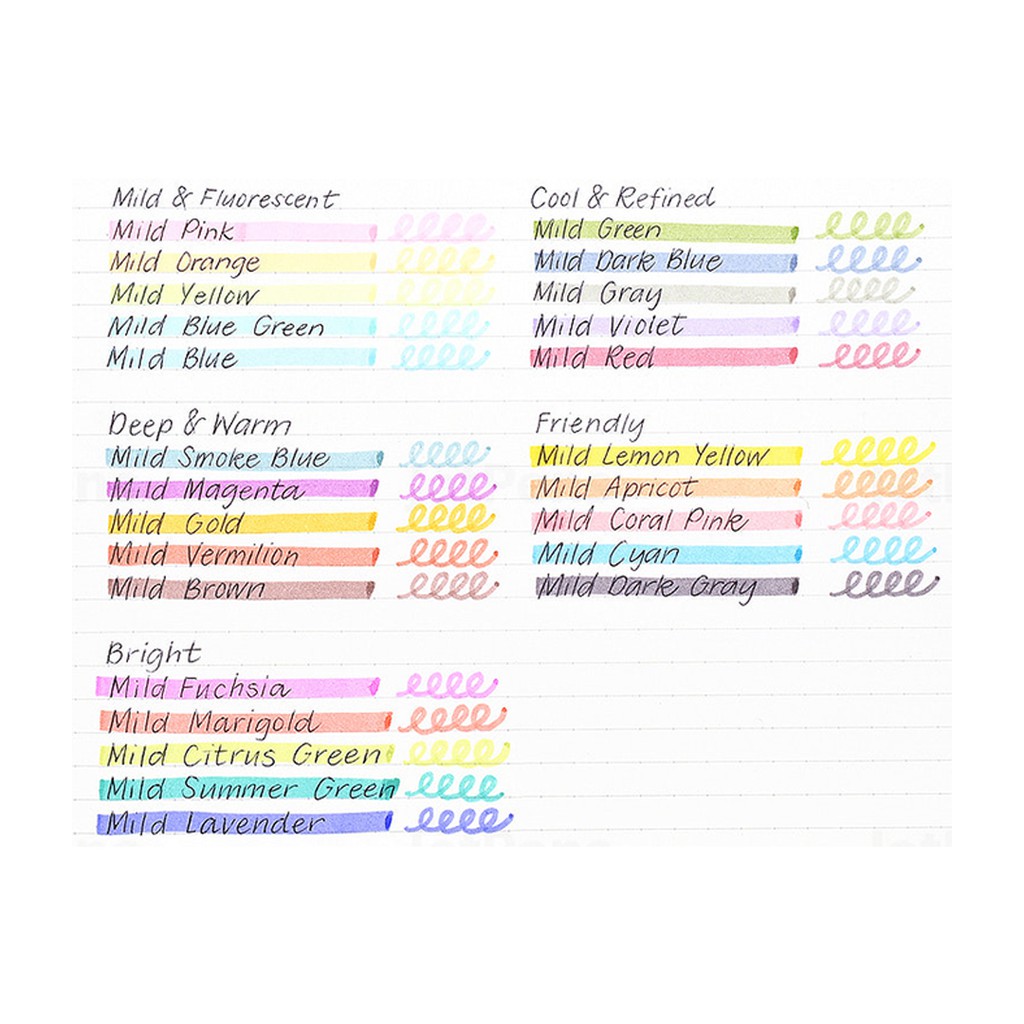 Mild & Fluorescent
Mild Pink
Mild Orange
Mild Yellow
Mild Blue Green
Mild Blue
Cool & Refined
Mild Green
Mild Dark Blue
Mild Gray
Mild Violet
Mild Red
Deep & Warm
Mild Smoke Blue
Mild Magenta
Mild Gold
Mild Vermilion
Mild Brown
Friendly
Mild Lemon Yellow
Mild Apricot
Mild Coral Pink
Mild Cyan
Mild Dark Gray
Bright
Mild Fuchsia
Mild Marigold
Mild Citrus Green
Mild Summer Green
Mild Lavender